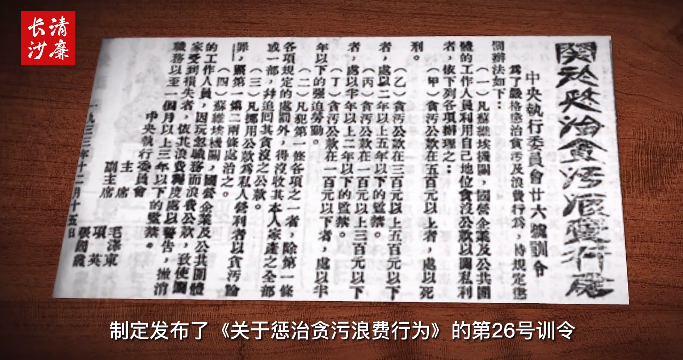 清廉
长沙
關於懲治貪污浪費行為
中央執行委員會廿六號訓令
為了嚴格懲治貪污及浪費行為,特規定懲
罰辦法如下:
(一)凡蘇維埃機關,國營企業及公共團
體的工作人員利用自己地位貪沒公款以圖私利
者,依下列各項辦理之:
(甲)貪污公款在五百元以上者,處以死
刑。
(乙)貪污公款在三百元以上五百元以下
者,處以二年以上五年以下的監禁。
(丙)貪污公款在一百元以上三百元以下
者,處以半年以上二年以下的監禁。
(丁)貪污公款在一百元以下者,處以半
年以下的強迫勞動。
(二)凡犯第一條各項之一者,除第一條
各項規定的處罰外,得沒收其本人家產之全部
或一部,幷追回其貪沒之公款。
(三)凡挪用公款為私人營利者以貪污論
罪,照第一第二兩條處治之。
(四)蘇維埃機關,國營企業及公共團體
的工作人員,因玩忽職務而浪費公款,致使國
家受到損失者,依其浪費程度處以警告,撤消
職務以至一個月以上三年以下的監禁。
中央執行委員會
主席 毛澤東
副主席 項英
張國燾
一九三三年十二月十五日
制定发布了《关于惩治贪污浪费行为》的第26号训令